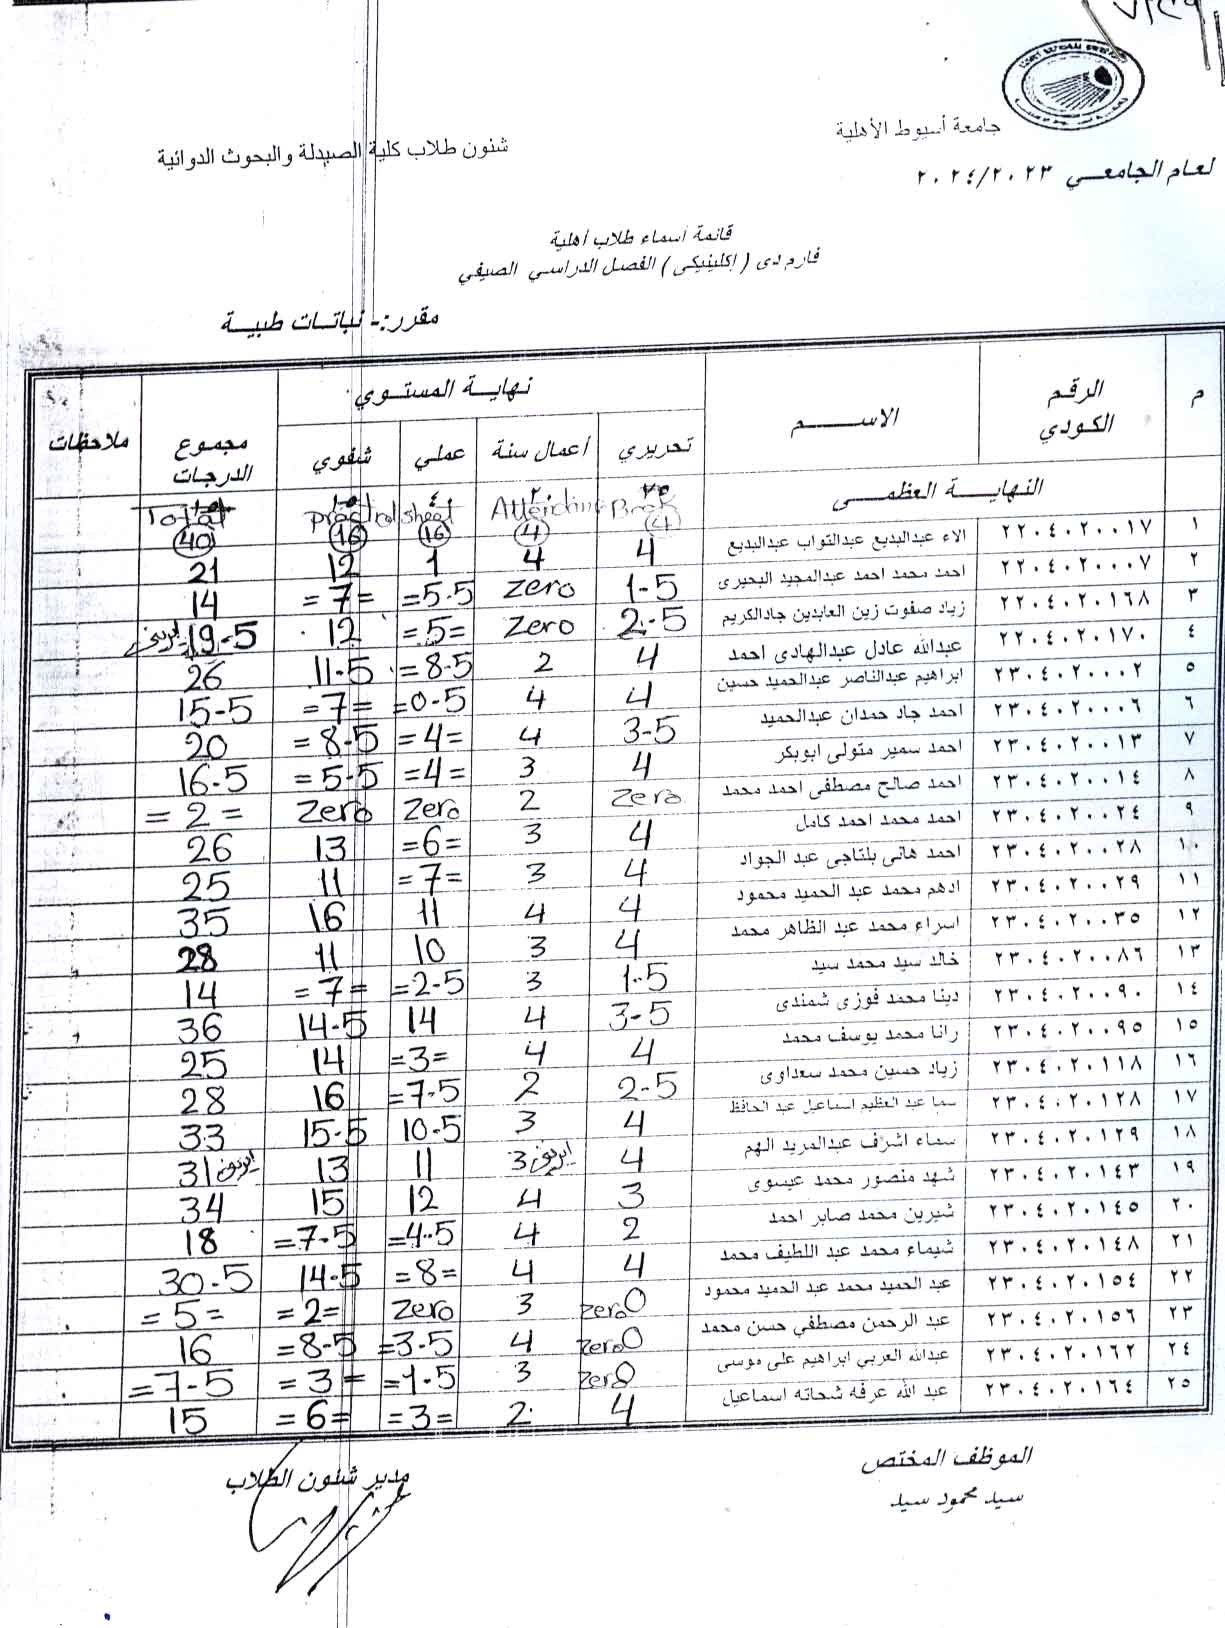 جامعة أسيوط الأهلية
شئون طلاب كلية الصيدلة والبحوث الدوائية
لعام الجامعي ٢٠٢٤/٢٠٢٣
قائمة أسماء طلاب أهلية
فارم دى (إكلينيكى) الفصل الدراسي الصيفي
مقرر:- نباتات طبية
م الرقم الكودي الاســـم نهاية المستوي مجموع الدرجات ملاحظات
تحريري أعمال سنة عملي شفوي
النهاية العظمى
(4) (4) sheet (16) Practical (16) Total (40)
١ ٢٢٠٤٠٢٠٠١٧ الاء عبدالبديع عبدالتواب عبدالبديع 4 4 1 12 21
٢ ٢٢٠٤٠٢٠٠٠٧ احمد محمد احمد عبدالمجيد البحيرى 1-5 zero =5.5 =7= 14
٣ ٢٢٠٤٠٢٠١٦٨ زياد صفوت زين العابدين جادالكريم 2.-5 zero =5= 12 19-5
٤ ٢٢٠٤٠٢٠١٧٠ عبدالله عادل عبدالهادى احمد 4 2 =8-5 11-5 26
٥ ٢٣٠٤٠٢٠٠٠٢ ابراهيم عبدالناصر عبدالحميد حسين 4 4 =0-5 =7= 15-5
٦ ٢٣٠٤٠٢٠٠٠٦ احمد جاد حمدان عبدالحميد 3-5 4 =4= =8-5 20
٧ ٢٣٠٤٠٢٠٠١٣ احمد سمير متولى ابوبكر 4 3 =4= =5-5 16-5
٨ ٢٣٠٤٠٢٠٠١٤ احمد صالح مصطفى احمد محمد zero 2 zero zero =2=
٩ ٢٣٠٤٠٢٠٠٢٤ احمد محمد احمد كامل 4 3 =6= 13 26
١٠ ٢٣٠٤٠٢٠٠٢٨ احمد هانى بلتاجى عبد الجواد 4 3 =7= 11 25
١١ ٢٣٠٤٠٢٠٠٢٩ ادهم محمد عبد الحميد محمود 4 4 11 16 35
١٢ ٢٣٠٤٠٢٠٠٣٥ اسراء محمد عبد الظاهر محمد 4 3 10 11 28
١٣ ٢٣٠٤٠٢٠٠٨٦ خالد سيد محمد سيد 1.-5 3 =2-5 =7= 14
١٤ ٢٣٠٤٠٢٠٠٩٠ دينا محمد فوزى شمندى 3-5 4 14 14-5 36
١٥ ٢٣٠٤٠٢٠٠٩٥ رانا محمد يوسف محمد 4 4 =3= 14 25
١٦ ٢٣٠٤٠٢٠١١٨ زياد حسين محمد سعداوى 2-5 2 =7-5 16 28
١٧ ٢٣٠٤٠٢٠١٢٨ سما عبد العظيم اسماعيل عبد الحافظ 4 3 10-5 15-5 33
١٨ ٢٣٠٤٠٢٠١٢٩ سماء اشرف عبدالمريد الهم 4 3 11 13 31
١٩ ٢٣٠٤٠٢٠١٤٣ شهد منصور محمد عيسوى 3 4 12 15 34
٢٠ ٢٣٠٤٠٢٠١٤٥ شيرين محمد صابر احمد 2 4 =4.-5 =7-5 18
٢١ ٢٣٠٤٠٢٠١٤٨ شيماء محمد عبد اللطيف محمد 4 4 =8= 14-5 30-5
٢٢ ٢٣٠٤٠٢٠١٥٤ عبد الحميد محمد عبد الحميد محمود zero 0 3 zero =2= =5=
٢٣ ٢٣٠٤٠٢٠١٥٦ عبد الرحمن مصطفي حسن محمد zero 0 4 =3-5 =8-5 16
٢٤ ٢٣٠٤٠٢٠١٦٢ عبدالله العربي ابراهيم على موسى zero 0 3 =1-5 =3= =7-5
٢٥ ٢٣٠٤٠٢٠١٦٤ عبد الله عرفه شحاته اسماعيل 4 2 =3= =6= 15
الموظف المختص
مدير شئون الطلاب
سيد محمود سيد